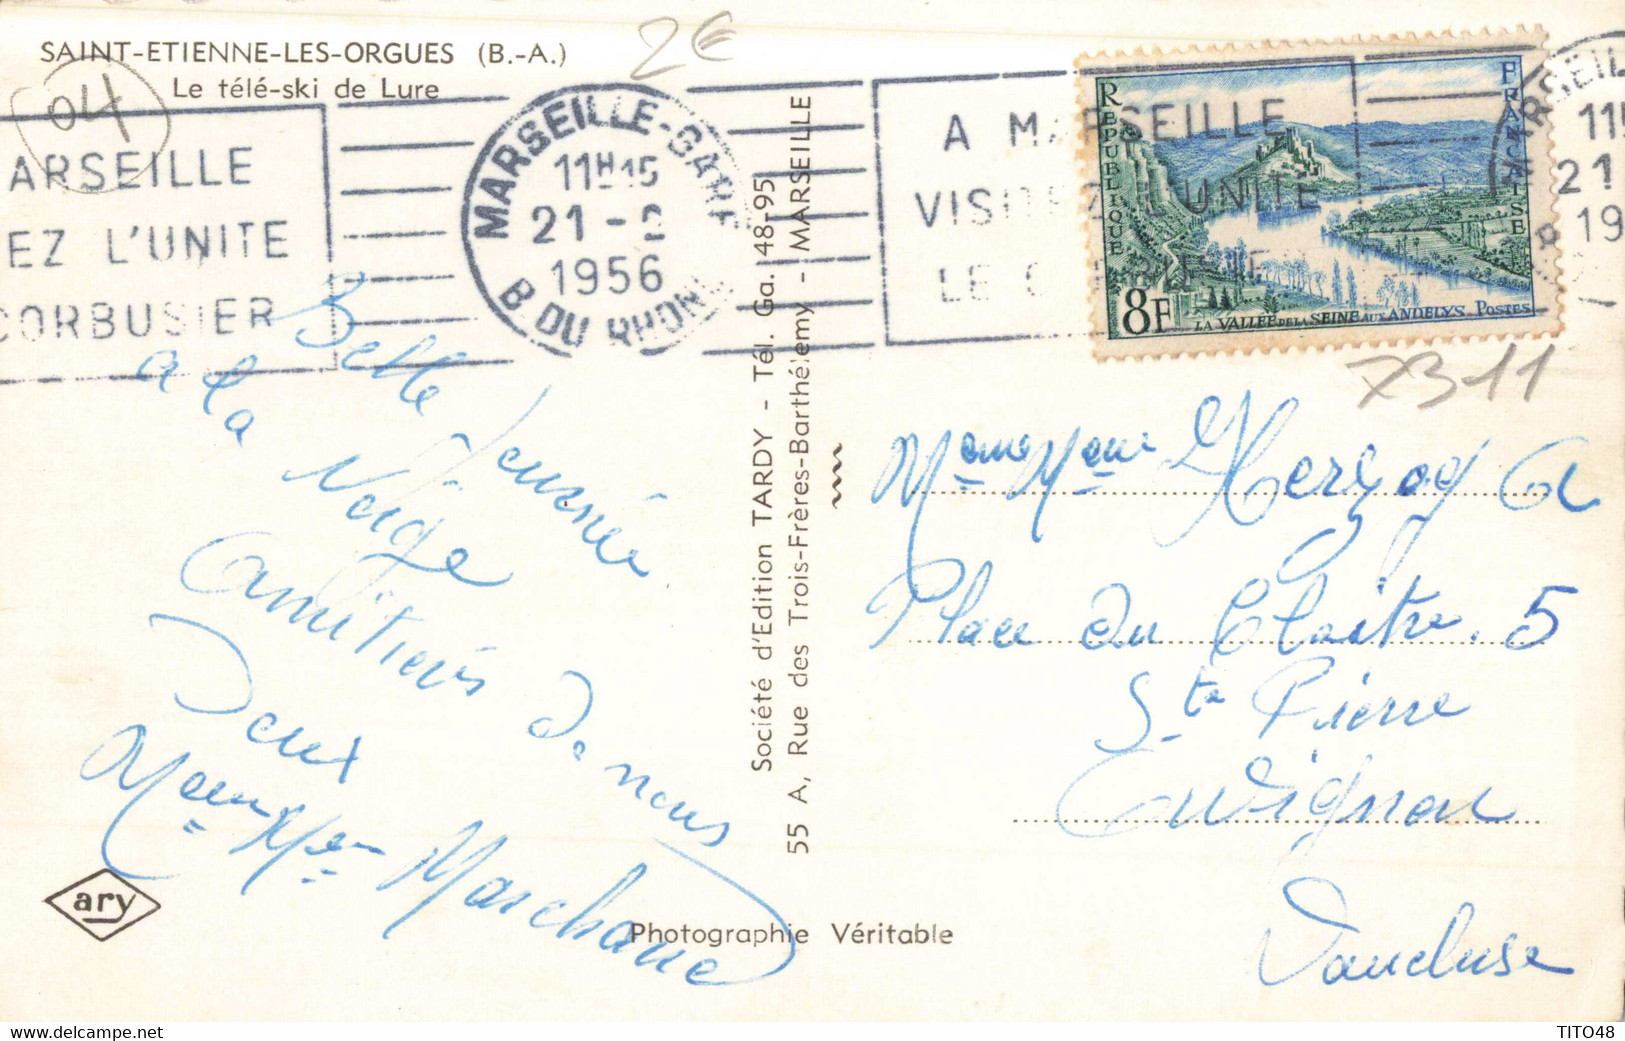 SAINT-ETIENNE-LES-ORGUES (B.-A.)
Le télé-ski de Lure
04
2€
ARSEILLE
EZ L'UNITE
CORBUSIER
MARSEILLE-GARE
11H15
21-2
1956
B. DU RHONE
A MARSEILLE
VISITEZ L'UNITE
LE CORBUSIER
REPUBLIQUE
FRANÇAISE
8F
LA VALLEE DE LA SEINE AUX ANDELYS POSTES
RSEIL
11
21
19
7311
Belle Journée
a la Neige
Amitiés de nous
Deux
Marchand
Société d'Edition TARDY - Tél. Ga. 48-95
55 A, Rue des Trois-Frères-Barthélemy - MARSEILLE
Herzog A
Place du Cloitre. 5
Ste Pierre
Avignon
Vaucluse
ary
Photographie Véritable
TITO48